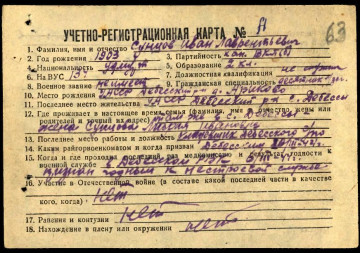 63
УЧЕТНО-РЕГИСТРАЦИОННАЯ КАРТА № А
1. Фамилия, имя и отчество Сунцов Иван Лаврентьевич
2. Год рождения 1903 3. Партийность кан. ВКП(б)
4. Национальность удмурт 5. Образование 2 кл.
6. На ВУС 13 7. Должностная квалификация
8. Военное звание 9. Гражданская специальность
10. Место рождения УАССР Дебесский р-н д. Ариково
11. Последнее место жительства УАССР Дебесский р-н с. Дебессы
12. Где проживает в настоящее время семья (фамилия, имя, отчество жены или
родителей и точный их адрес)
жена Сунцова
13. Последнее место работы и должность Дебесского
14. Каким райгорвоенкоматом и когда призван Дебесским
15. Когда и где проходил последний раз медкомиссию и степень годности к
военной службе в
признан годным к нестроевой службе
16. Участие в Отечественной войне (в составе какой последней части в качестве
кого, когда) нет
нет
17. Ранения и контузии нет
18. Нахождение в плену или окружении нет